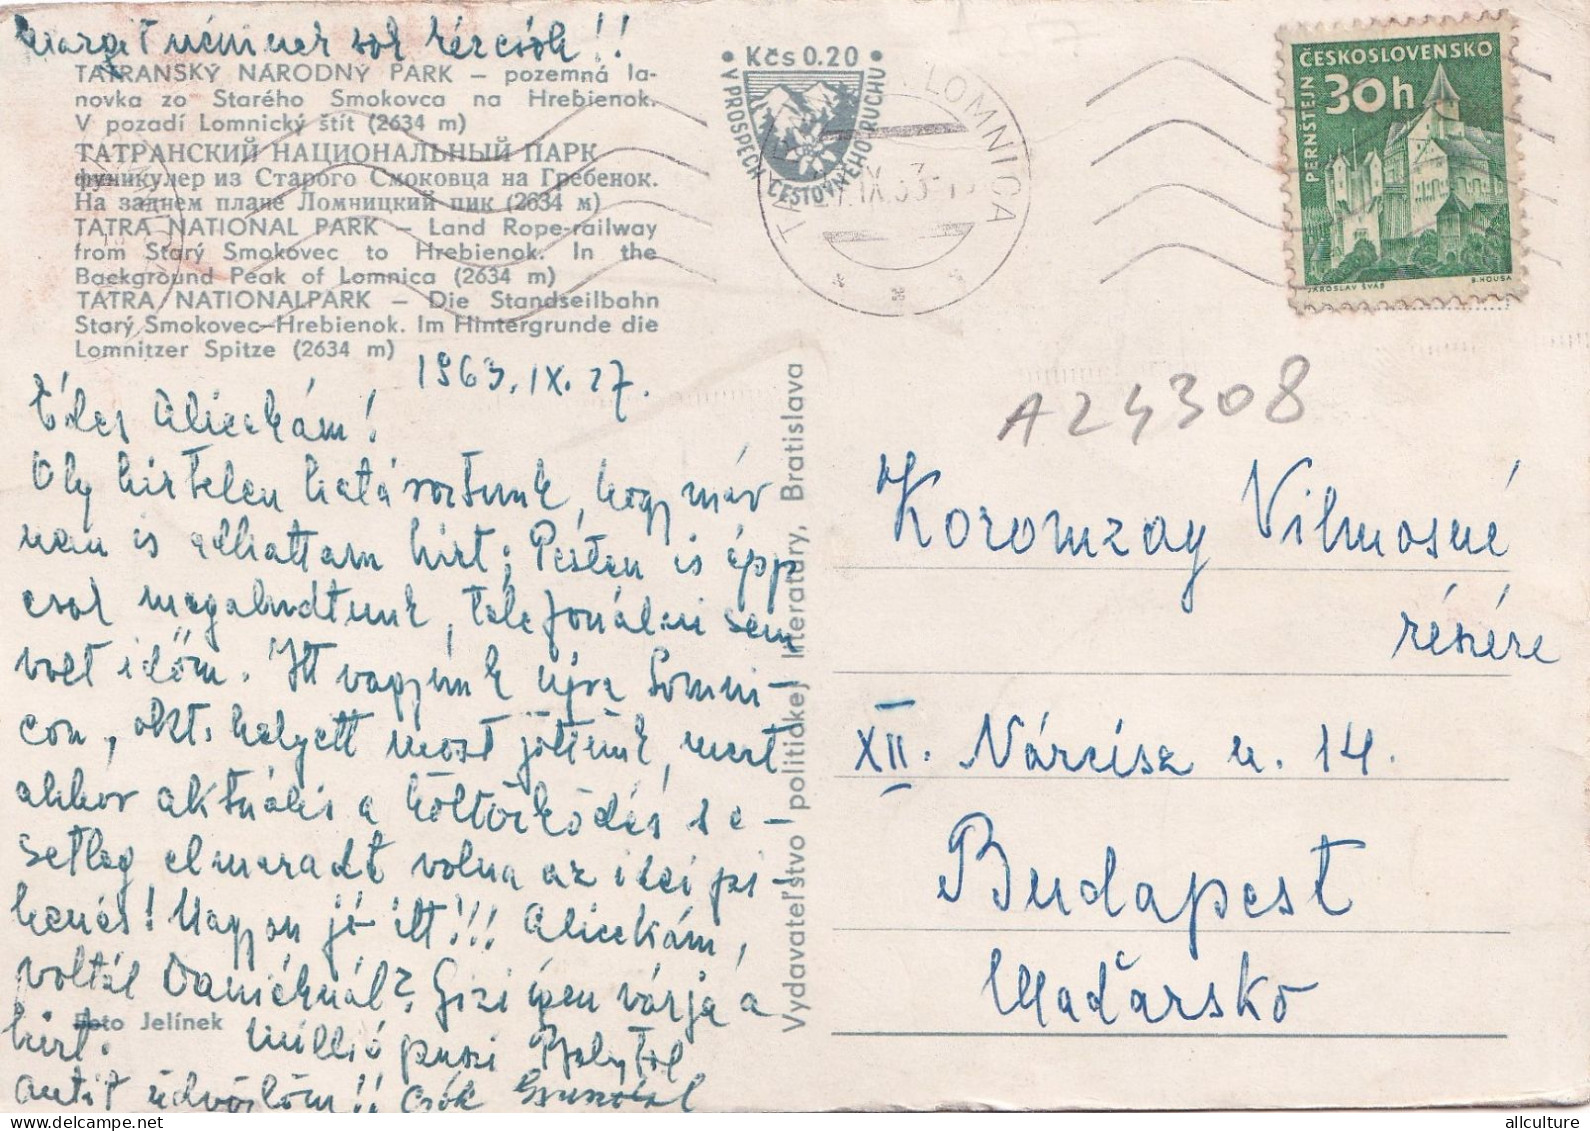 Margit néninek sok kézcsók!!
TATRANSKÝ NÁRODNÝ PARK – pozemná la-
novka zo Starého Smokovca na Hrebienok.
V pozadí Lomnický štít (2634 m)
ТАТРАНСКИЙ НАЦИОНАЛЬНЫЙ ПАРК
фуникулер из Старого Смоковца на Гребенок.
На заднем плане Ломницкий пик (2634 м)
TATRA NATIONAL PARK – Land Rope-railway
from Starý Smokovec to Hrebienok. In the
Background Peak of Lomnica (2634 m)
TATRA NATIONALPARK – Die Standseilbahn
Starý Smokovec–Hrebienok. Im Hintergrunde die
Lomnitzer Spitze (2634 m)
1963. IX. 27.
Édes Alicekám!
Oly hirtelen határoztunk, hogy már
nem is adhattam hírt; Pesten is épp
csak megaludtunk, telefonálni sem
volt időm. Itt vagyunk újra Lomni-
con, okt. helyett most jöttünk, mert
akkor aktuális a költözködés s e-
setleg elmaradt volna az idei pi-
henés! Nagyon jó itt!!! Alicekám,
voltál Daniéknál? Gizi épen várja a
hírt. Millió puszi Babytol
Foto Jelínek
Antit üdvözlöm!! Csók
• Kčs 0.20 •
V PROSPECH CESTOVNÉHO RUCHU
LOMNICA
ČESKOSLOVENSKO
30h
PERNŠTEJN
JAROSLAV ŠVÁB
B. HOUSA
Vydavateľstvo politickej literatúry, Bratislava
A24308
Koromzay Vilmosné
részére
XII. Nárcisz u. 14.
Budapest
Maďarsko
allculture